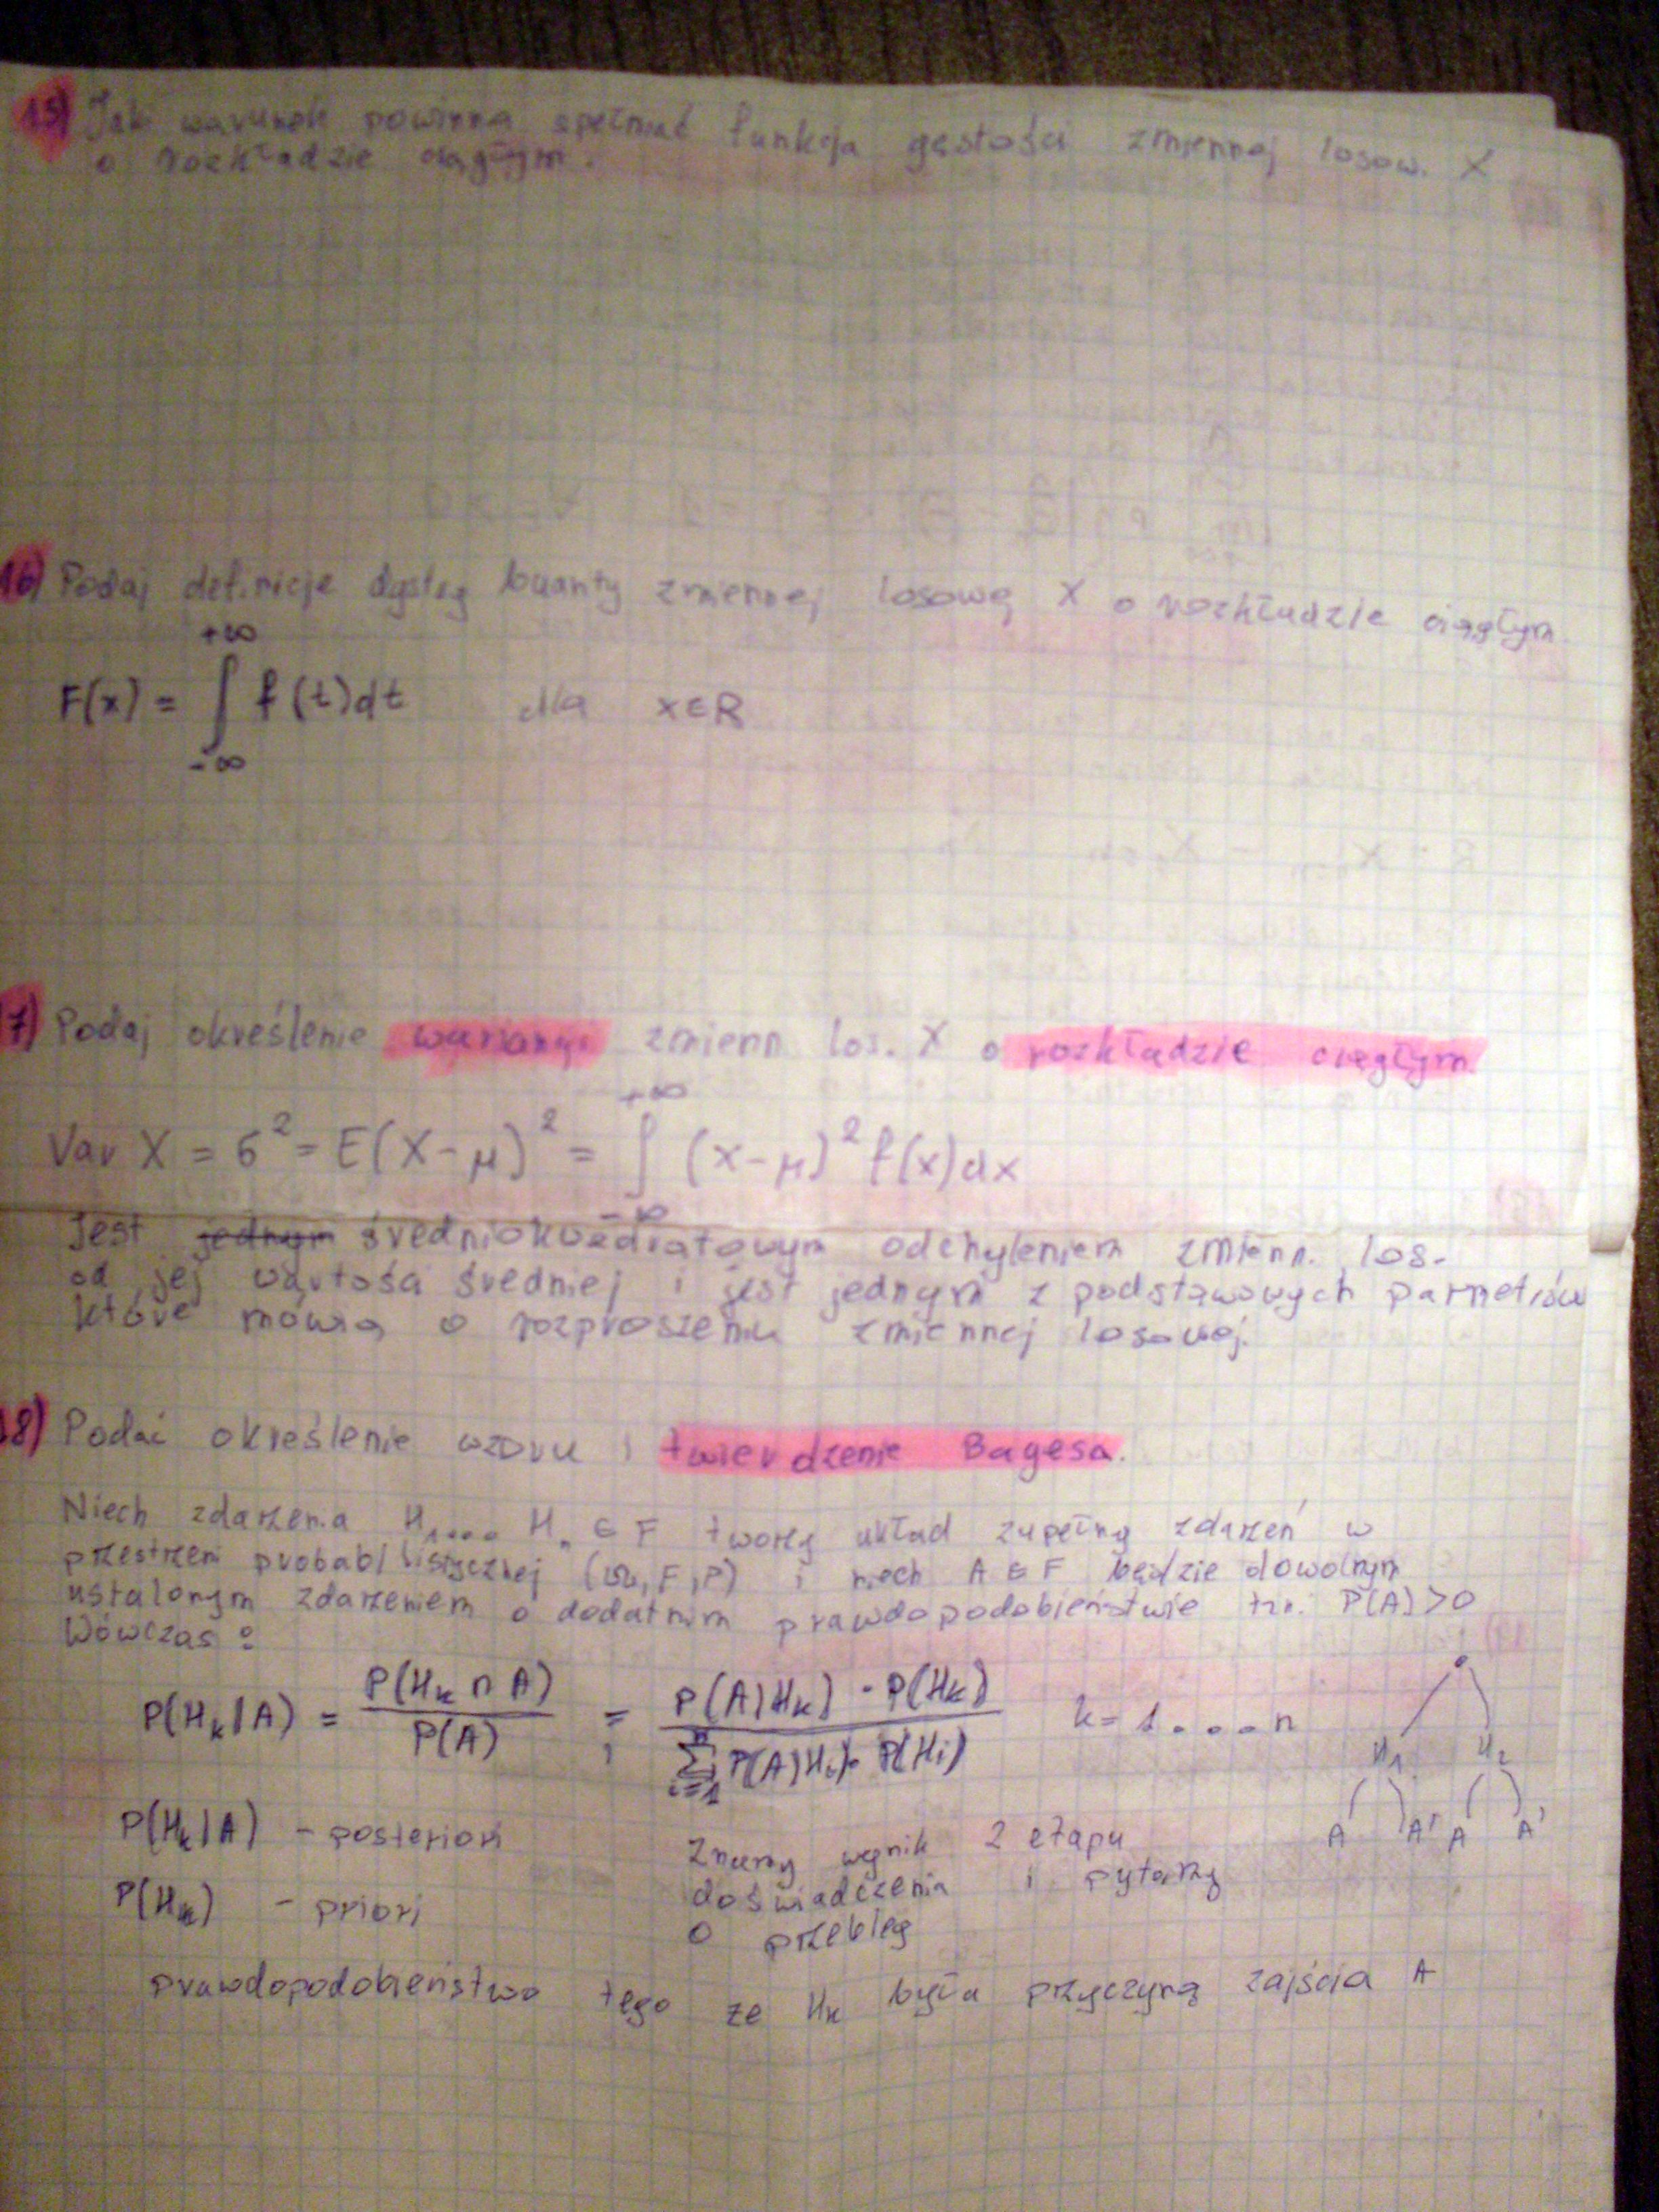 15) Jak warunek powinna spełniać funkcja gęstości zmiennej losow. X
o rozkładzie ciągłym.
16) Podaj definicje dystrybuanty zmiennej losowej X o rozkładzie ciągłym
F(x) = ∫_{-∞}^{+∞} f(t)dt dla x∈R
17) Podaj określenie wariancji zmienn los. X o rozkładzie ciągłym
Var X = σ² = E(X-μ)² = ∫_{-∞}^{+∞} (x-μ)² f(x)dx
Jest jednym średniokwadratowym odchyleniem zmienn. los.
od jej wartości średniej i jest jednym z podstawowych parmetrów
które mówią o rozproszeniu zmiennej losowej.
18) Podać określenie wzoru i twierdzenie Bayesa.
Niech zdarzenia H₁... Hₙ ∈ F tworzy układ zupełny zdarzeń w
przestrzeni probabilistycznej (Ω, F, P) i niech A ∈ F będzie dowolnym
ustalonym zdarzeniem o dodatnim prawdopodobieństwie tzn. P(A)>0
Wówczas:
P(Hₖ|A) = P(Hₖ ∩ A) / P(A) = P(A|Hₖ) · P(Hₖ) / ∑_{i=1}^{n} P(A|Hᵢ) · P(Hᵢ) k = 1....n
H₁ H₂
A A' A A'
P(Hₖ|A) - posteriori
P(Hₖ) - priori
Znamy wynik 2 etapu
doświadczenia i pytamy
o przebieg
prawdopodobieństwo tego ze Hₖ była przyczyną zajścia A